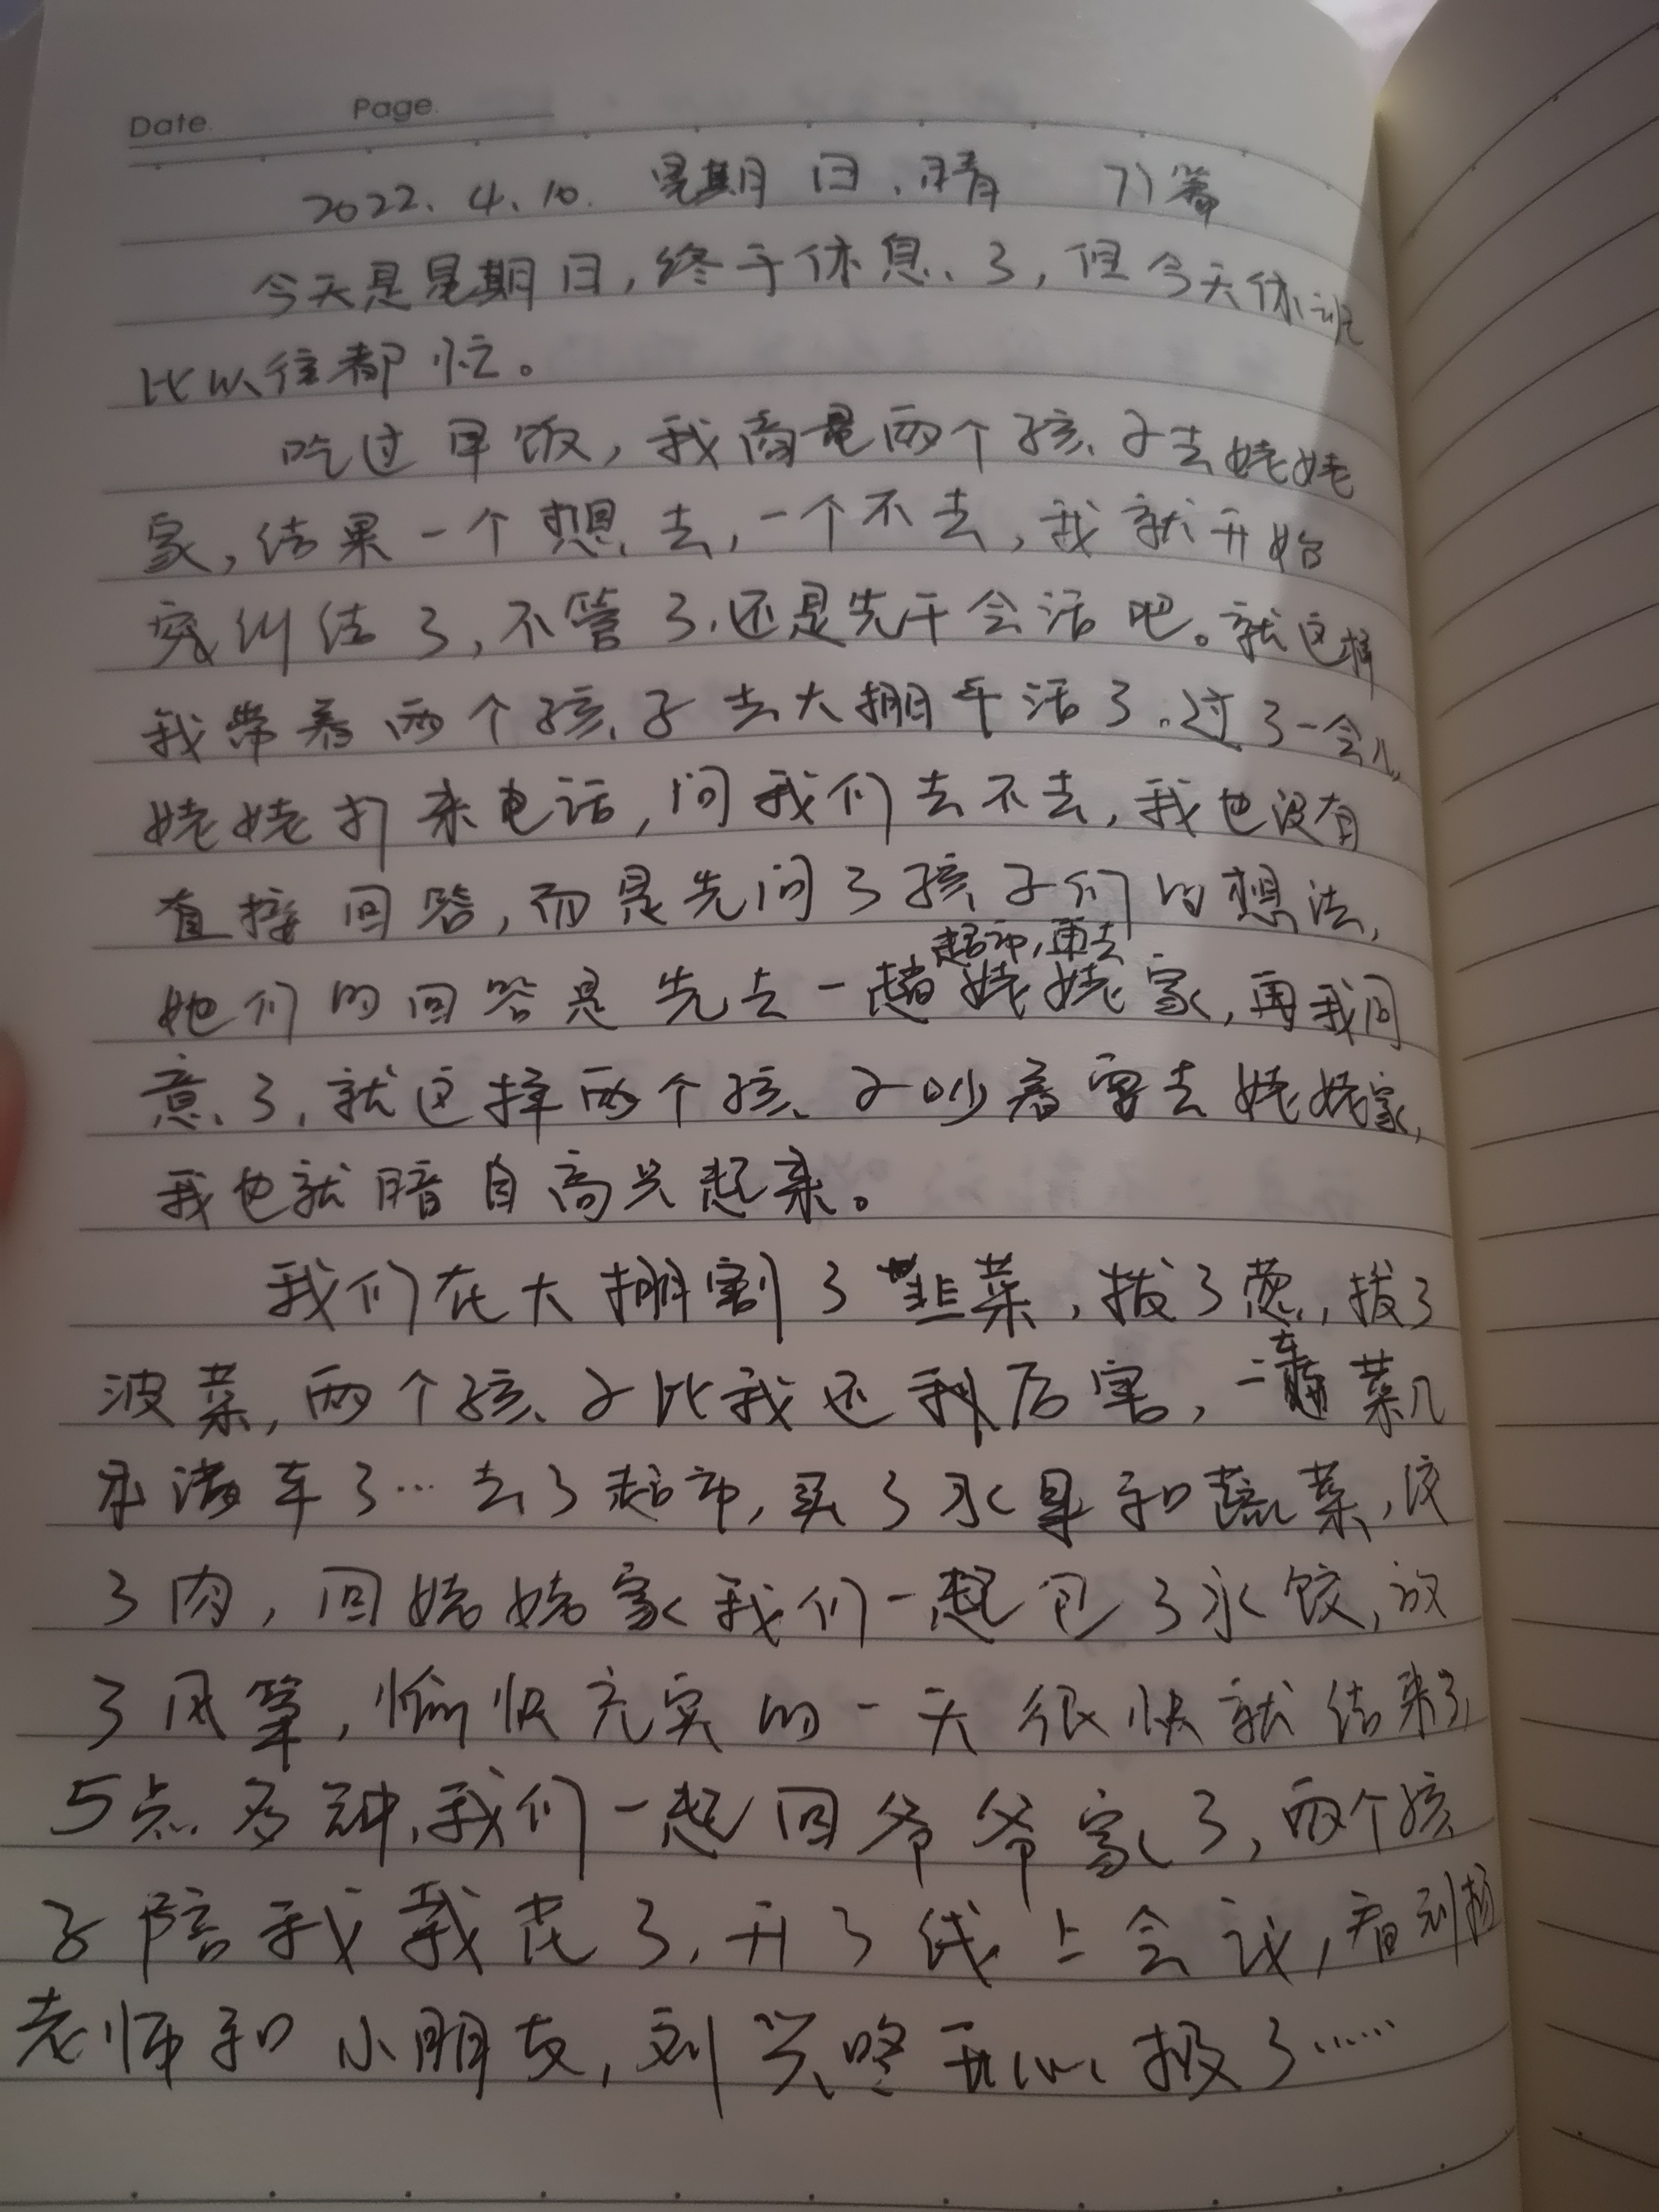 Date.   Page.
2022.4.10. 星期日.晴   71篇
今天是星期日,终于休息了,但今天休班
比以往都忙。
吃过早饭,我商量两个孩子去姥姥
家,结果一个想去,一个不去,我就开始
纠结了,不管了.还是先干会活吧。就这样
我带着两个孩子去大棚干活了.过了一会儿,
姥姥打来电话,问我们去不去,我也没有
直接回答,而是先问了孩子们的想法,
超市,再去
她们的回答是先去一趟姥姥家,再我同
意了,就这样两个孩子吵着要去姥姥家,
我也就暗自高兴起来。
我们在大棚割了韭菜,拔了葱,拔了
波菜,两个孩子比我还厉害,菜几
乎满车了…去了超市,买了水果和蔬菜,绞
了肉,回姥姥家我们一起包了水饺,放
了风筝,愉快充实的一天很快就结束了,
5点多钟,我们一起回爷爷家了,两个孩
子陪我栽花了,开了线上会议,看到杨
老师和小朋友,刘兴咚开心极了……